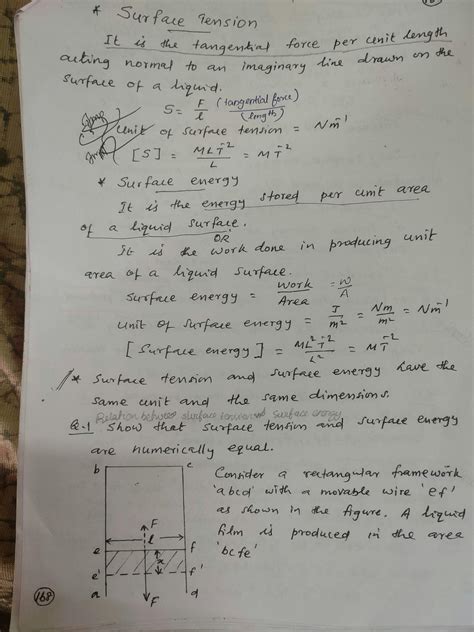 * Surface Tension
It is the tangential force per unit length
acting normal to an imaginary line drawn on the
surface of a liquid.
S = F/l (tangential force)/(length)
Unit of surface tension = Nm⁻¹
[S] = MLT⁻²/L = MT⁻²
* Surface energy
It is the energy stored per unit area
of a liquid surface.
OR
It is the work done in producing unit
area of a liquid surface.
Surface energy = Work/Area = W/A
Unit of surface energy = J/m² = Nm/m² = Nm⁻¹
[Surface energy] = ML²T⁻²/L² = MT⁻²
* Surface tension and surface energy have the
same unit and the same dimensions.
Relation between surface tension & surface energy
Q-1 Show that surface tension and surface energy
are numerically equal.
b c
Consider a rectangular framework
'abcd' with a movable wire 'ef'
as shown in the figure. A liquid
film is produced in the area
'bcfe'
F
l
e f
x
e' f'
a F d
168